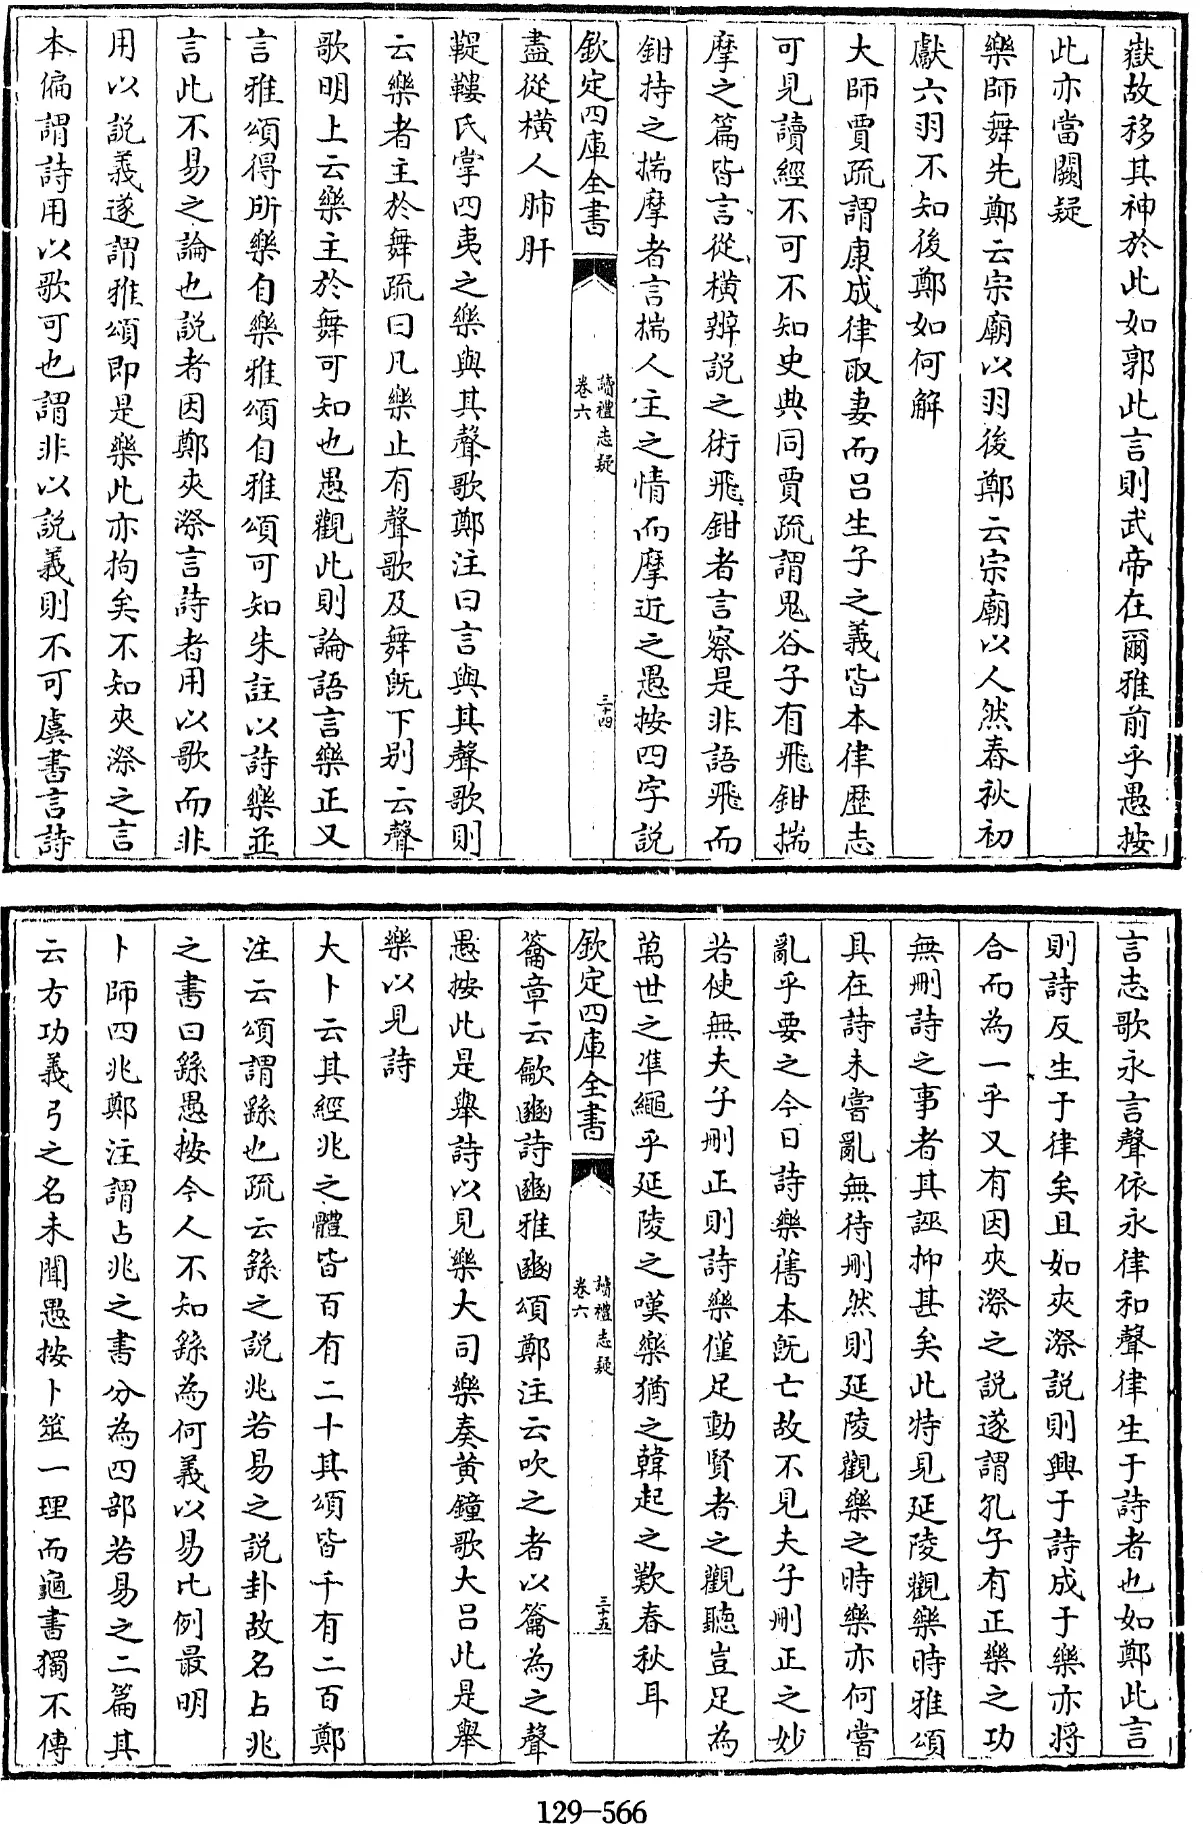 嶽故移其神於此如郭此言則武帝在爾雅前乎愚按
此亦當闕疑
樂師舞先鄭云宗廟以羽後鄭云宗廟以人然春秋初
獻六羽不知後鄭如何解
大師賈疏謂康成律取妻而呂生子之義皆本律歴志
可見讀經不可不知史典同賈疏謂鬼谷子有飛鉗揣
摩之篇皆言從横辨説之術飛鉗者言察是非語飛而
鉗持之揣摩者言揣人主之情而摩近之愚按四字説
欽定四庫全書
讀禮志疑
卷六
三十四
盡從横人肺肝
鞮鞻氏掌四夷之樂與其聲歌鄭注曰言與其聲歌則
云樂者主於舞疏曰凡樂止有聲歌及舞既下别云聲
歌明上云樂主於舞可知也愚觀此則論語言樂正又
言雅頌得所樂自樂雅頌自雅頌可知朱註以詩樂並
言此不易之論也説者因鄭夾漈言詩者用以歌而非
用以説義遂謂雅頌即是樂此亦拘矣不知夾漈之言
本偏謂詩用以歌可也謂非以説義則不可虞書言詩
言志歌永言聲依永律和聲律生于詩者也如鄭此言
則詩反生于律矣且如夾漈説則興于詩成于樂亦将
合而為一乎又有因夾漈之説遂謂孔子有正樂之功
無刪詩之事者其誣抑甚矣此特見延陵觀樂時雅頌
具在詩未嘗亂無待刪然則延陵觀樂之時樂亦何嘗
亂乎要之今日詩樂舊本既亡故不見夫子刪正之妙
若使無夫子刪正則詩樂僅足動賢者之觀聽豈足為
萬世之凖繩乎延陵之嘆樂猶之韓起之歎春秋耳
欽定四庫全書
讀禮志疑
卷六
三十五
籥章云龡豳詩豳雅豳頌鄭注云吹之者以籥為之聲
愚按此是舉詩以見樂大司樂奏黄鐘歌大吕此是舉
樂以見詩
大卜云其經兆之體皆百有二十其頌皆千有二百鄭
注云頌謂繇也疏云繇之説兆若易之説卦故名占兆
之書曰繇愚按今人不知繇為何義以易比例最明
卜師四兆鄭注謂占兆之書分為四部若易之二篇其
云方功義弓之名未聞愚按卜筮一理而龜書獨不傳
129-566